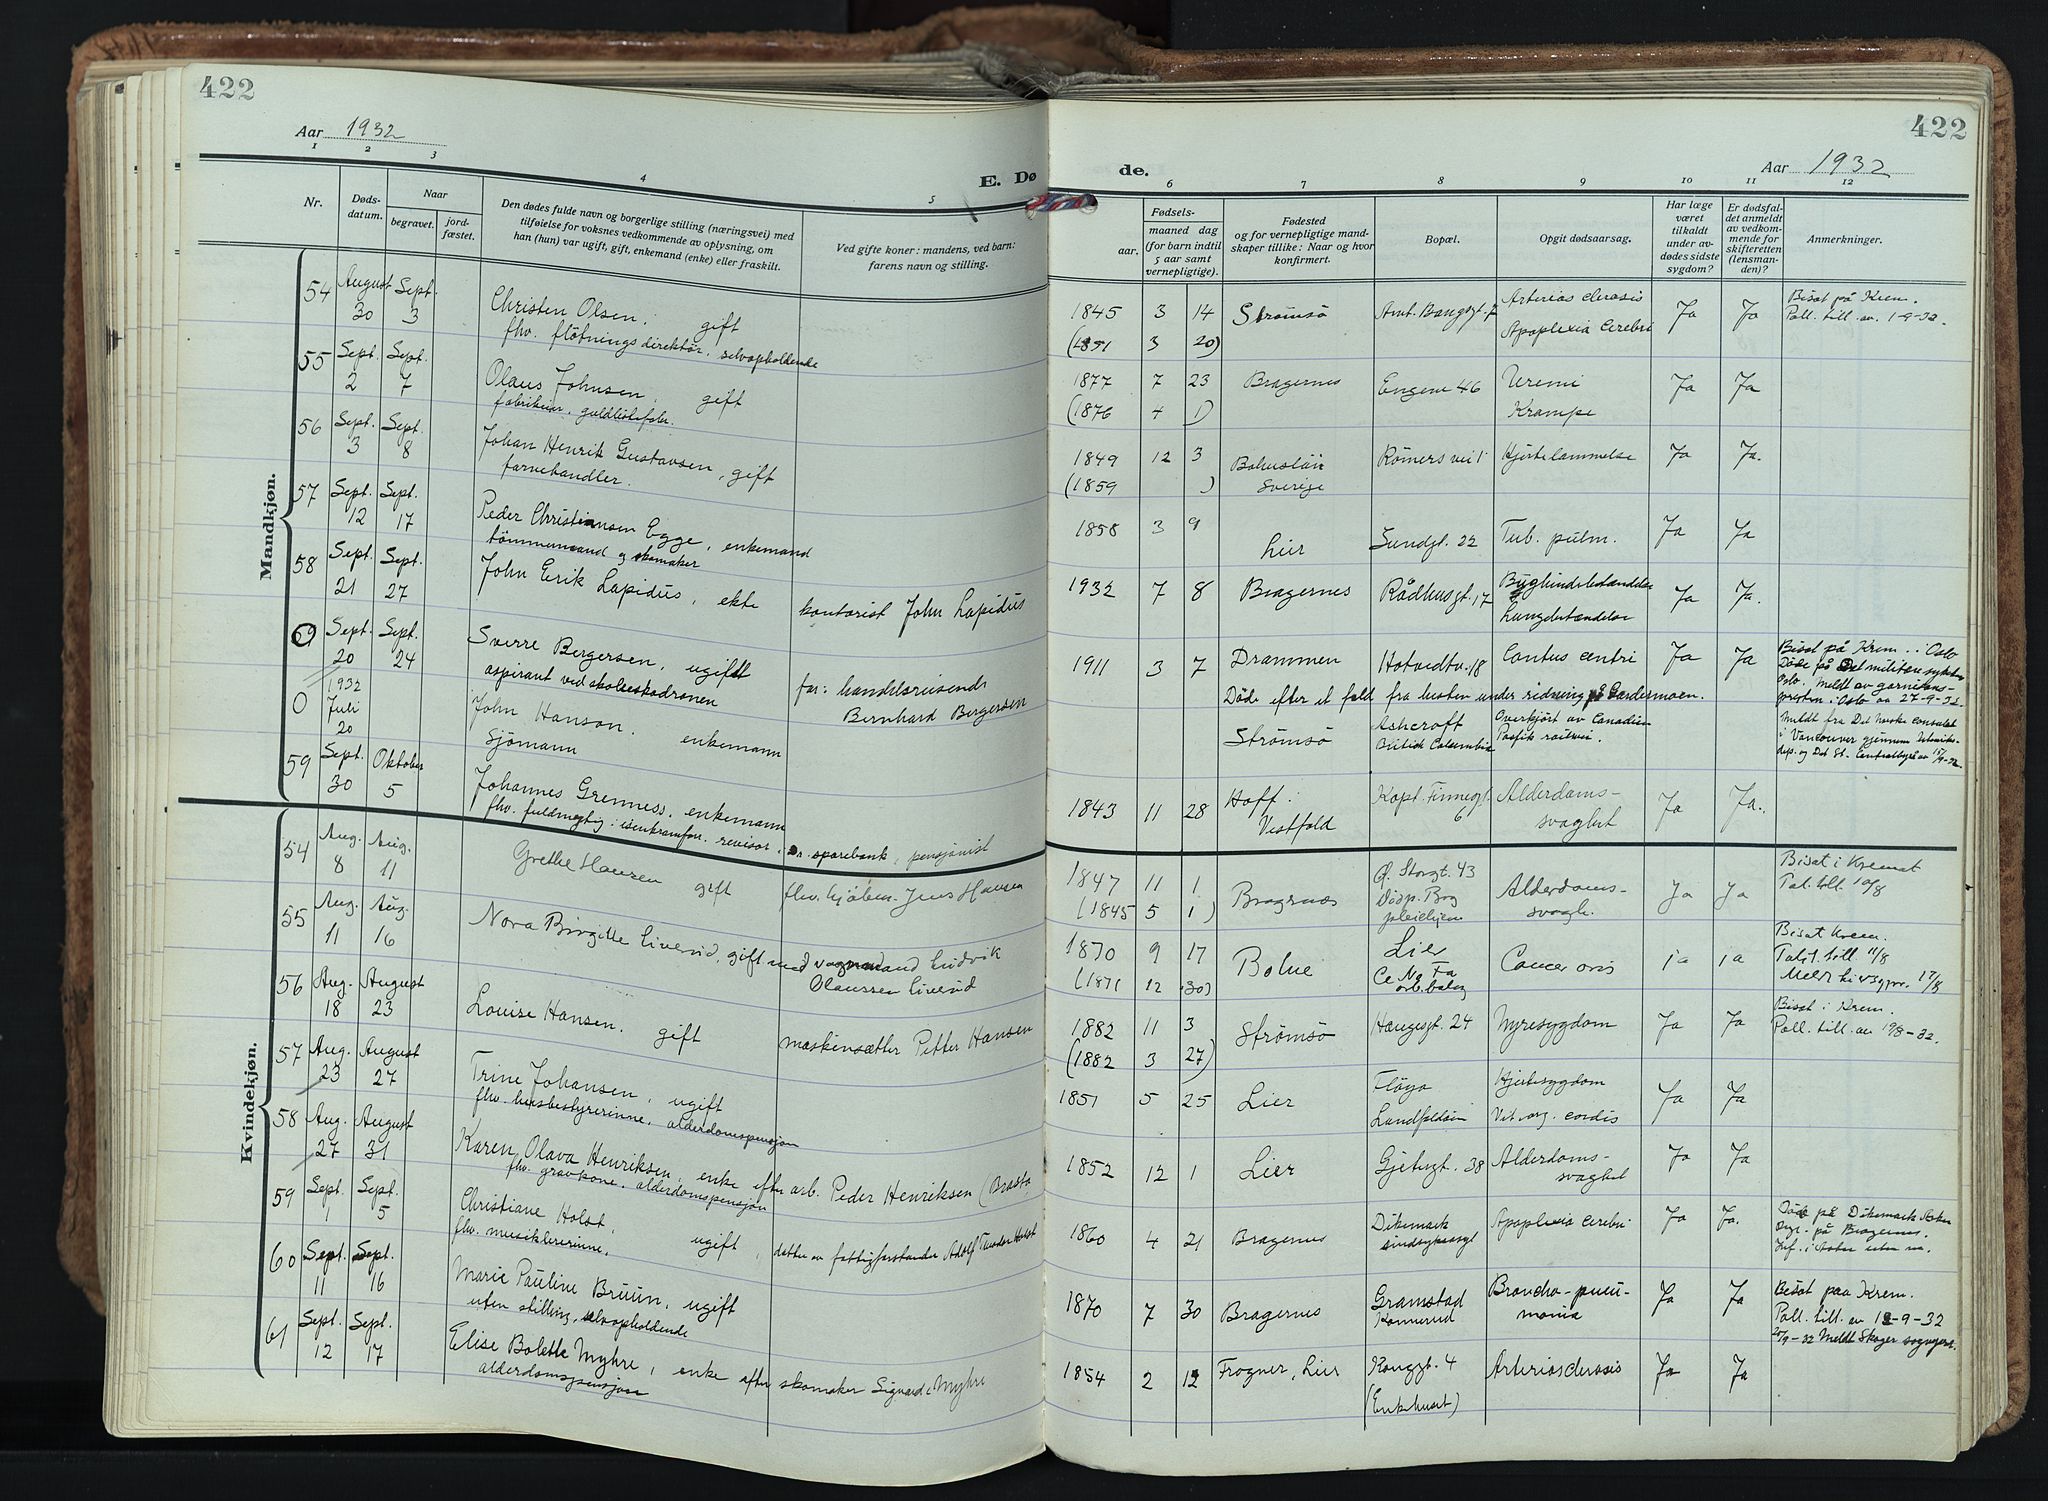 422
Aar 1932
1 2 3 4 5
E. Dø
Nr.
Døds-
datum.
Naar
begravet.
jord-
fæstet.
Den dødes fulde navn og borgerlige stilling (næringsvei) med
tilføielse for voksnes vedkommende av oplysning, om
han (hun) var ugift, gift, enkemand (enke) eller fraskilt.
Ved gifte koner: mandens, ved barn:
farens navn og stilling.
Mandkjøn.
54 August 30 Sept. 3 Christen Olsen, gift
fhv. fløtningsdirektør, selvopholdende
55 Sept. 2 Sept. 7 Olaus Johnsen, gift
fabrikeier, guldlistefabr.
56 Sept. 3 Sept. 8 Johan Henrik Gustavsen, gift
farvehandler.
57 Sept. 12 Sept. 17 Peder Christiansen Egge, enkemand
tømmermand og skomaker
58 Sept. 21 Sept. 27 John Erik Lapidus, ekte kontorist John Lapidus
59 Sept. 20 Sept. 24 Sverre Bergersen, ugift
aspirant ved skoleeskadronen far: handelsreisende
Bernhard Bergersen
0 1932 Juli 20 John Hanson, enkemann
Sjømann
59 Sept. 30 Oktober 5 Johannes Grenness, enkemann
fhv. fuldmegtig i isenkramforr. revisor i Dr. sparebank, pensjonist
Kvindekjøn.
54 Aug. 8 Aug. 11 Grethe Hansen gift fhv. kjøbm. Jens Hansen
55 Aug. 11 Aug. 16 Nora Birgitte Liverud, gift med vognmand Ludvik
Olaussen Liverud
56 Aug. 18 August 23 Louise Hansen, gift maskensætter Petter Hansen
57 Aug. 23 August 27 Trine Johansen, ugift
fhv. husbestyrerinne, alderdomspensjon
58 Aug. 27 August 31 Karen Olava Henriksen, enke efter arb. Peder Henriksen (Brasta
fhv. gravkone, alderdomspensjon
59 Sept. 1 Sept. 5 Christiane Holst, ugift, datter av fattigforstander Adolf Teodor Holst
fhv. musiklererinne,
60 Sept. 11 Sept. 16 Marie Pauline Bruun, ugift
uten stilling, selvopholdende
61 Sept. 12 Sept. 17 Elise Bolette Myhre, enke efter skomaker Sigvard Myhre
alderdomspensjon
422
de.
Aar 1932
6 7 8 9 10 11 12
Fødsels-
aar.
maaned dag
(for barn indtil
5 aar samt
vernepligtige).
Fødested
og for vernepligtige mand-
skaper tillike: Naar og hvor
konfirmert.
Bopæl.
Opgit dødsaarsag.
Har læge
været
tilkaldt
under av-
dødes sidste
sygdom?
Er dødsfal-
det anmeldt
av vedkom-
mende for
skifteretten
(lensman-
den)?
Anmerkninger.
1845 3 14 Strømsø Amt. Bangsgt. 7 Arteriosclerosis Ja Ja Bisat på Krem.
(1851 3 20) Apoplexia cerebri Poll. till. av. 1-9-32.
1877 7 23 Bragernes Engene 46 Uremi Ja Ja
(1876 4 1) Krampe
1849 12 3 Bohuslän Rømers vei 1 Hjertelammelse Ja Ja.
(1859 ) Sverige
1858 3 9 Lier Sundgt. 22 Tub. pulm. Ja Ja
1932 7 8 Bragernes Rådhusgt. 17 Bughindebetændelse Ja Ja.
Lungebetændelse
1911 3 7 Drammen Hotvedtv. 18 Contus centri Ja Ja Bisat på Krem. i Oslo
Døde på Det militære sykehus
Oslo. Meldt av garnisons-
presten i Oslo av 27-9-32.
Døde efter et fald fra hesten under ridning på Gardermoen.
Strømsø Ashcroft British Columbia Overkjørt av Canadian
Pasifik railwei. Meldt fra Det norske consulat
i Vancouver gjennem Utenriks-
dep. og Det St. Centralbyrå av 15/9-32.
1843 11 28 Hoff i Vestfold Kapt. Finnesgt. 6 Alderdoms-
svaghet Ja Ja.
1847 11 1 Bragernes Ø. Storgt. 43 Alderdoms- Ja Ja Bisat i Kremat
(1845 5 1) Dødsp. Brag pleiehjem svagh. Pol. till. 10/8
1870 9 17 Lier Cancer ovis ja ja Bisat Krem.
(1871 12 30) Polit. till 11/8
Meer hiersgpr. 17/8
1882 11 3 Strømsø Haugesgt. 24 Nyresygdom Ja Ja Bisat i Krem.
(1882 3 27) Poll. till. av 19/8-32.
1851 5 25 Lier Fløya Hjertesygdom Ja Ja
Vit. org. cordis
1852 12 1 Lier Gjetergt. 38 Alderdoms-
svaghet Ja Ja
1860 4 21 Bragernes Dikemark
sindssykeasyl Apoplexia cerebri Ja Ja. Døde på Dikemark Asker
på Bragernes.
1870 7 30 Bragernes Gramstad
Konnerud Broncho-pneu-
monia Ja Ja Bisat paa Krem.
Poll. till. av 12-9-32
Meldt Skoger
1854 2 12 Frogner, Lier Konggt. 4
(Enkehuset) Arteriosclerosis Ja Ja